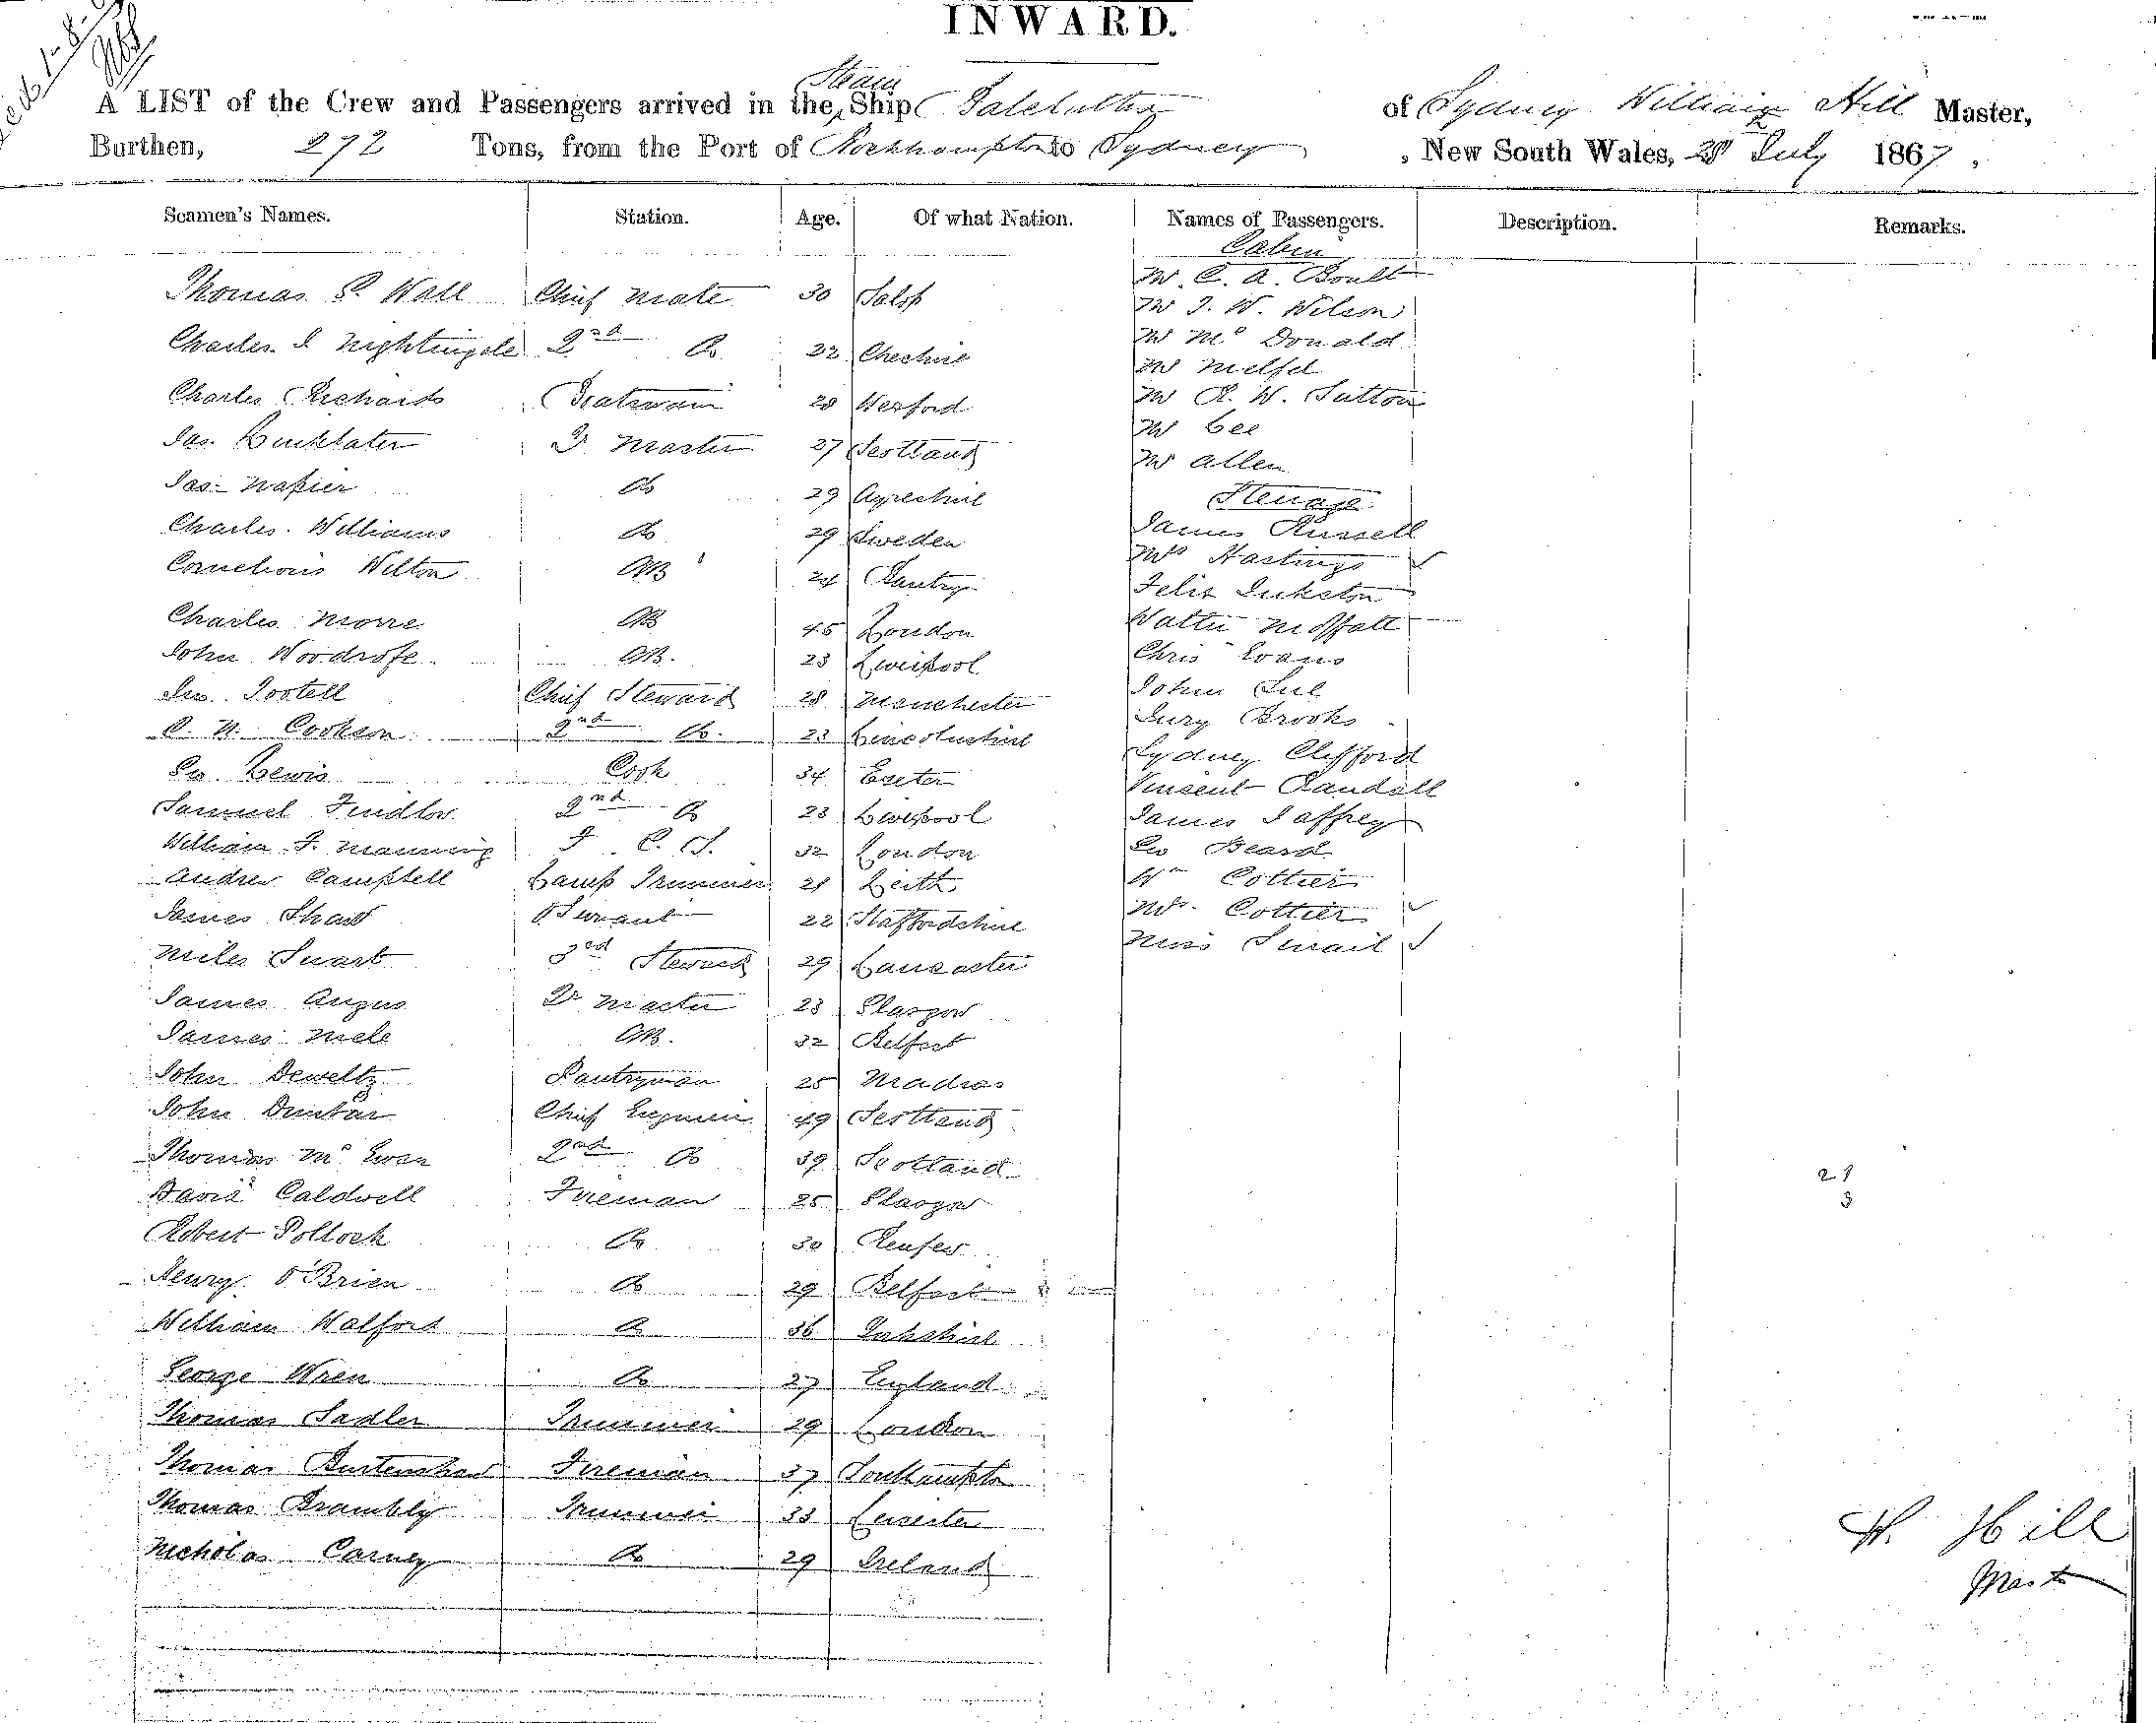 INWARD.
A LIST of the Crew and Passengers arrived in the Steam Ship of Sydney William Hill Master,
Burthen, 272 Tons, from the Port of Rockhampton to Sydney, New South Wales, 28 July 1867,
Seamen's Names. Station. Age. Of what Nation. Names of Passengers. Description. Remarks.
Cabin
Thomas P. Wall Chief Mate 30 Salop Mr C. A. Boult
Mr J. W. Wilson
Charles J Nightingale 2nd Do 22 Cheshire Mr McDonald
Mr
Charles Richards Boatswain 28 Wexford Mr R. W. Sutton
Jas. Linklater Qr Master 27 Scotland Mr Lee
Mr Allen
Jas. Napier Do 29 Ayreshire Steerage
Charles Williams Do 29 Sweden James Russell
Mrs Hastings
Cornelious Wilton AB 24 Bantry Felix
Charles Morre AB 45 London Walter Moffatt
John Woodrofe AB. 23 Liverpool Chris Evans
Jno. Postell Chief Steward 28 Manchester John
C. N. Cookson 2nd Do. 23 Lincolnshire Brooks
Geo. Lewis Cook 34 Exeter Sydney Clifford
Vinsent Randall
Samuel Findlow 2nd Do 23 Liverpool James Jaffrey
William F. Manning F. C. S. 32 London Geo Beard
Andrew Campbell Lamp Trimmer 21 Leith Wm Cottier
James Shaw Servant 22 Staffordshire Mrs. Cottier
Miles Swarb 3rd Steward 29 Lancaster Miss Swail
James Angus Qr Master 23 Glasgow
James Mele AB. 32 Belfast
John Deweltz Pantryman 25 Madras
John Dunbar Chief Engineer 49 Scotland
Thomas McEwan 2nd Do 39 Scotland
21
David Caldwell Fireman 25 Glasgow
3
Robert Pollock Do 30 Renfew
Henry O'Brien Do 29 Belfast
William Walford Do 36
George Wren Do 27 England
Thomas Sadler Trimmer 29 London
Thomas Burtenshaw Fireman 37 Southampton
Thomas Brambly Trimmer 33 Leicester
W. Hill
Nicholas Carney Do 29 Ireland
Master